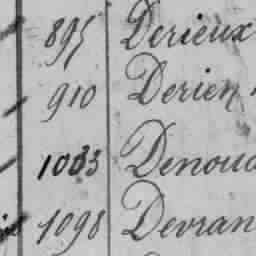 895 Derieux
910 Derien
1033 Denoua
1098 Devran